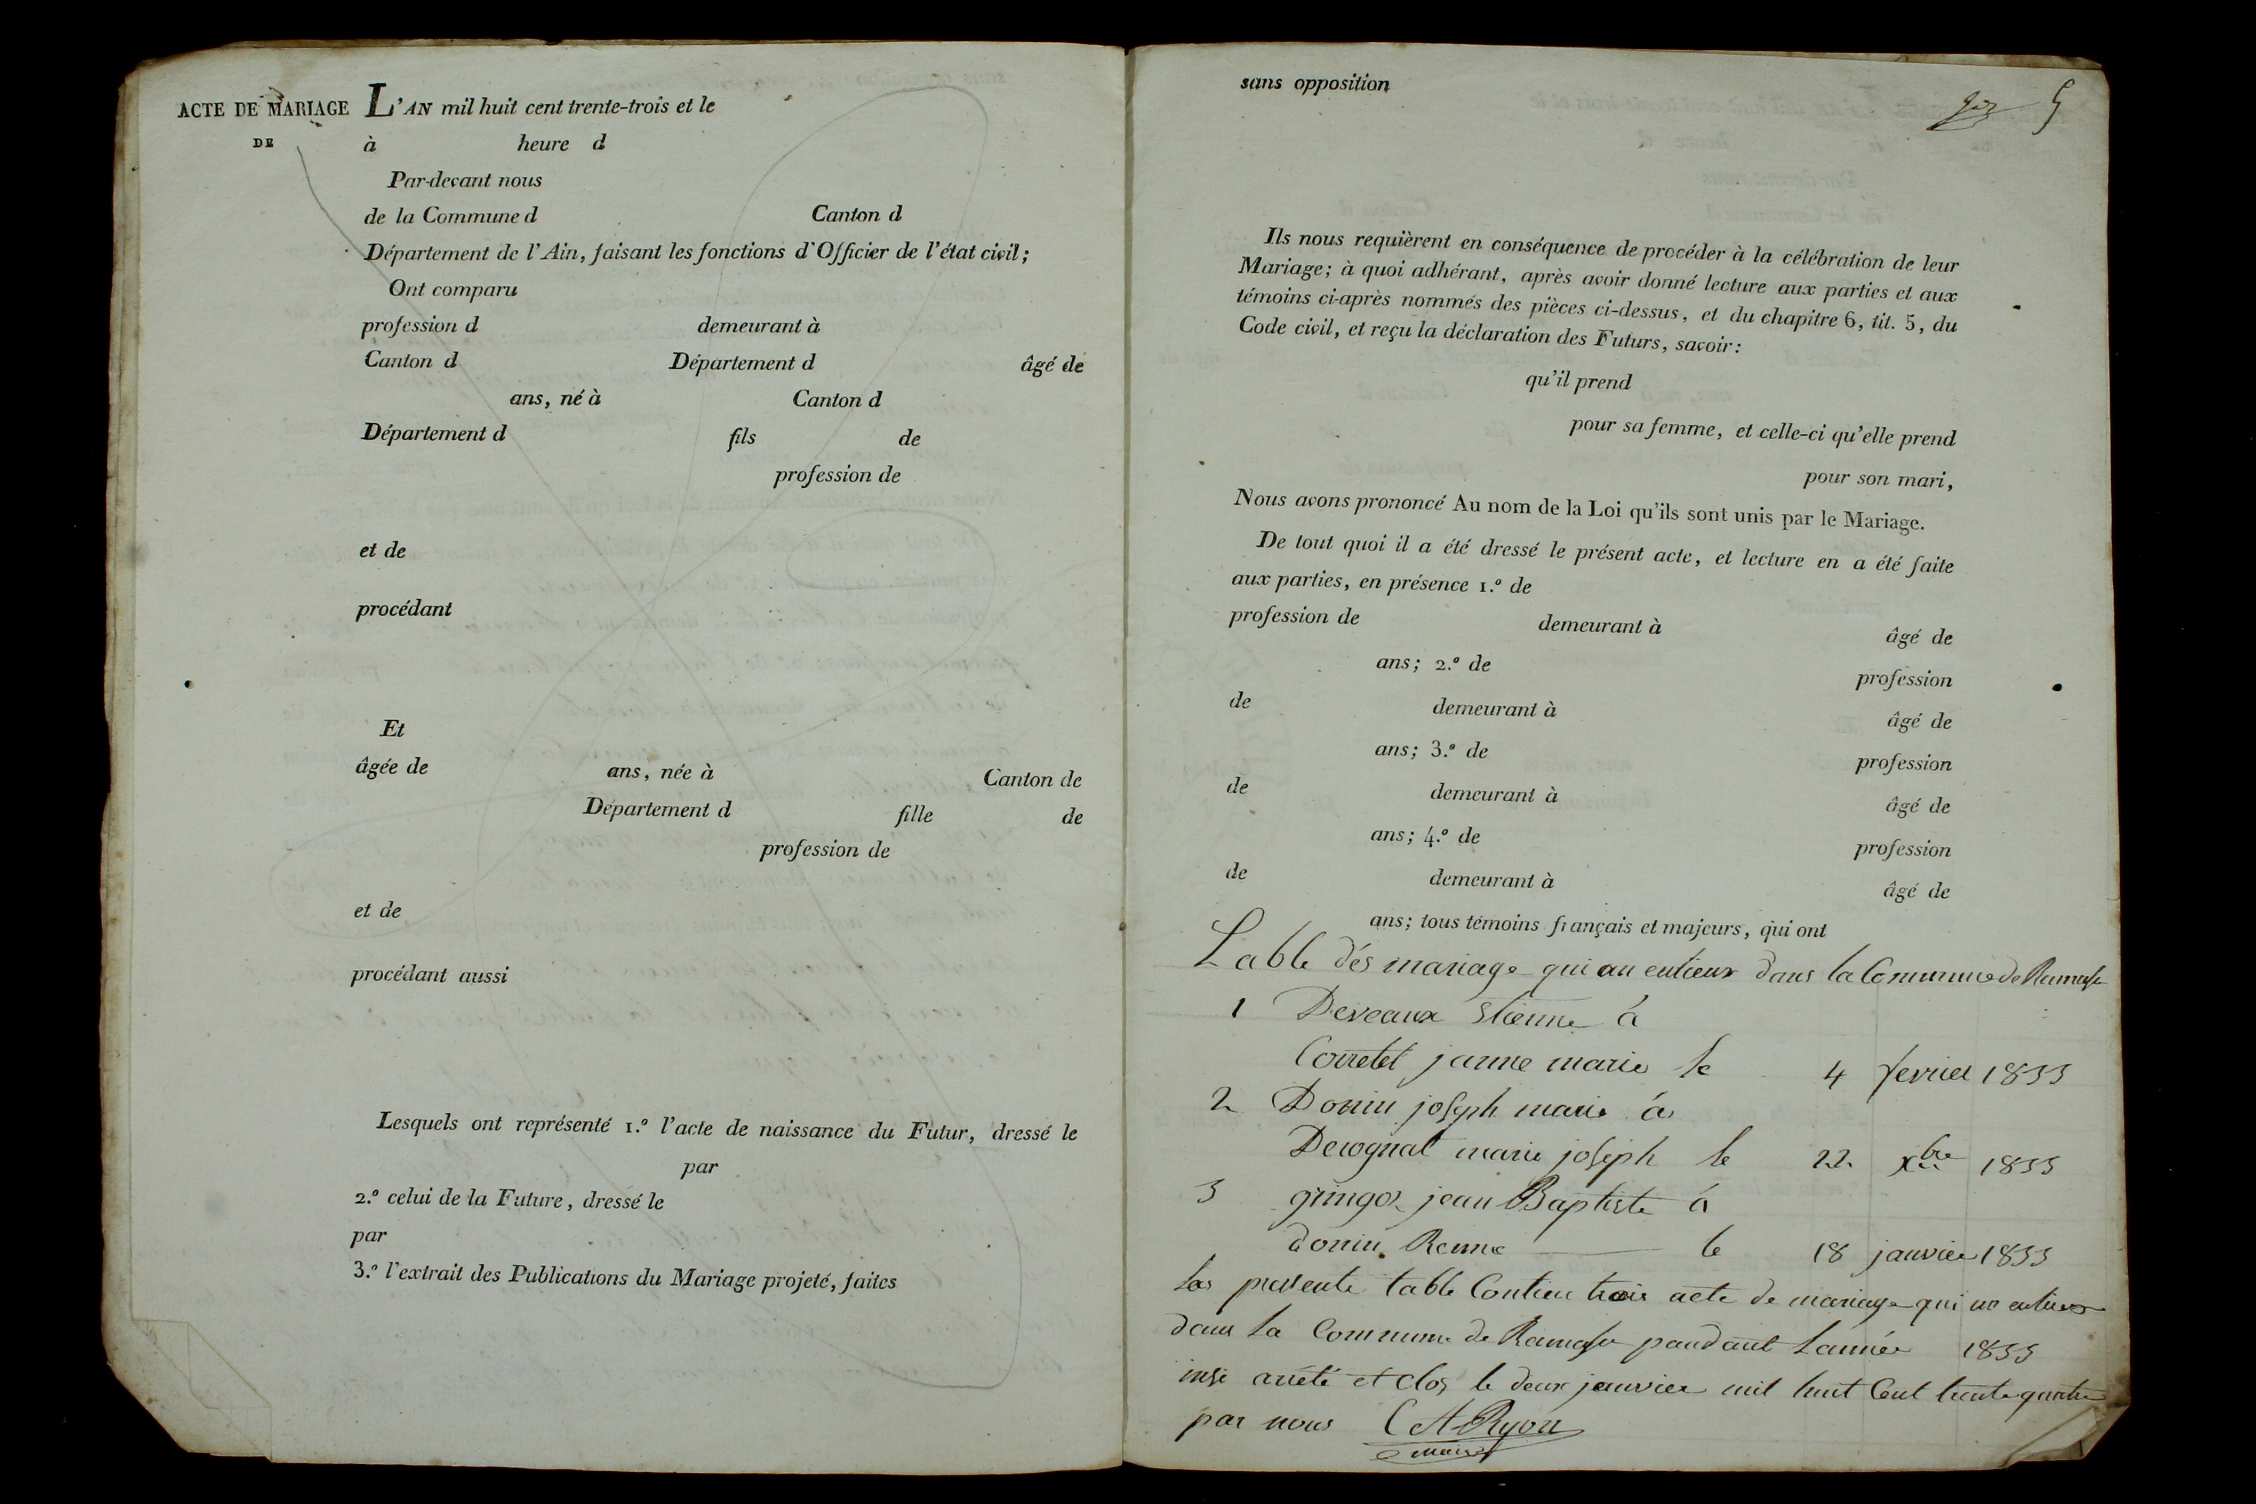 ACTE DE MARIAGE
DE
L'AN mil huit cent trente-trois et le
à heure d
Par-devant nous
de la Commune d Canton d
Département de l'Ain, faisant les fonctions d'Officier de l'état civil;
Ont comparu
profession d demeurant à
Canton d Département d âgé de
ans, né à Canton d
Département d fils de
profession de
et de
procédant
Et
âgée de ans, née à Canton de
Département d fille de
profession de
et de
procédant aussi
Lesquels ont représenté 1.º l'acte de naissance du Futur, dressé le
par
2.º celui de la Future, dressé le
par
3.º l'extrait des Publications du Mariage projeté, faites
sans opposition
5
Ils nous requièrent en conséquence de procéder à la célébration de leur
Mariage; à quoi adhérant, après avoir donné lecture aux parties et aux
témoins ci-après nommés des pièces ci-dessus, et du chapitre 6, tit. 5, du
Code civil, et reçu la déclaration des Futurs, savoir:
qu'il prend
pour sa femme, et celle-ci qu'elle prend
pour son mari,
Nous avons prononcé Au nom de la Loi qu'ils sont unis par le Mariage.
De tout quoi il a été dressé le présent acte, et lecture en a été faite
aux parties, en présence 1.º de
profession de demeurant à âgé de
ans; 2.º de profession
de demeurant à âgé de
ans; 3.º de profession
de demeurant à âgé de
ans; 4.º de profession
de demeurant à âgé de
ans; tous témoins français et majeurs, qui ont
Table dés mariage qui an eulieux dans la Commune de Ramasse
1 Deveaux Etienne á
Corretet janne marie le 4 fevrier 1833
2 Donin joseph marie á
Derognat marie joseph le 22 xbre 1833
3 gringoz jean Baptiste á
donin Renne le 18 janvier 1833
La pressente table Contien trois acte de mariage qui
dans la Commune de Ramasse pandant Lannée 1833
insi arrété et clos le deux janvier mil huit Cent trente quatre
par nous C A Ryon
maire